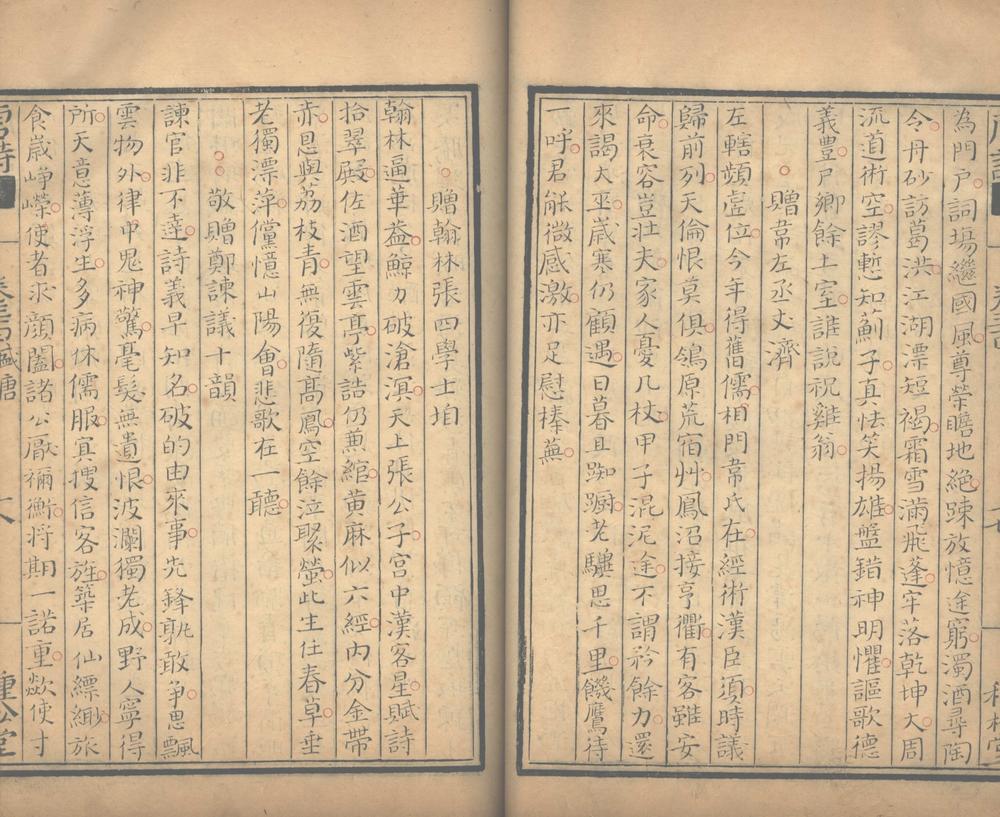 為門戶詞場繼國風尊榮瞻地絕踈放憶途窮濁酒尋陶
令丹砂訪葛洪江湖漂短褐霜雪滿飛蓬牢落乾坤大周
流道術空謬慙知薊子真怯笑揚雄盤錯神明懼謳歌德
義豊尸鄉餘土室誰說祝雞翁
贈韋左丞丈濟
左轄頻虛位今年得舊儒相門韋氏在經術漢臣須時議
歸前列天倫恨莫俱鴒原荒宿艸鳳沼接亨衢有客雖安
命衰容豈壯夫家人憂几杖甲子混泥途不謂矜餘力還
來謁大巫歲寒仍顧遇日暮且踟蹰老驥思千里饑鷹待
一呼君能微感激亦足慰榛蕪
贈翰林張四學士垍
翰林逼華葢鯨力破滄溟天上張公子宮中漢客星賦詩
拾翠殿佐酒望雲亭紫誥仍蒹綰黄麻似六經內分金帶
赤恩與荔枝青無復隨高鳳空餘泣聚螢此生任春草垂
老獨漂萍儻憶山陽會悲歌在一聽
敬贈鄭諫議十韻
諫官非不達詩義早知名破的由來事先鋒孰敢爭思飄
雲物外律中鬼神驚毫髮無遺恨波瀾獨老成野人寧得
所天意薄浮生多病休儒服冥搜信客旌築居仙縹緲旅
食歲崢嶸使者求顏闔諸公厭禰衡將期一諾重歘使寸